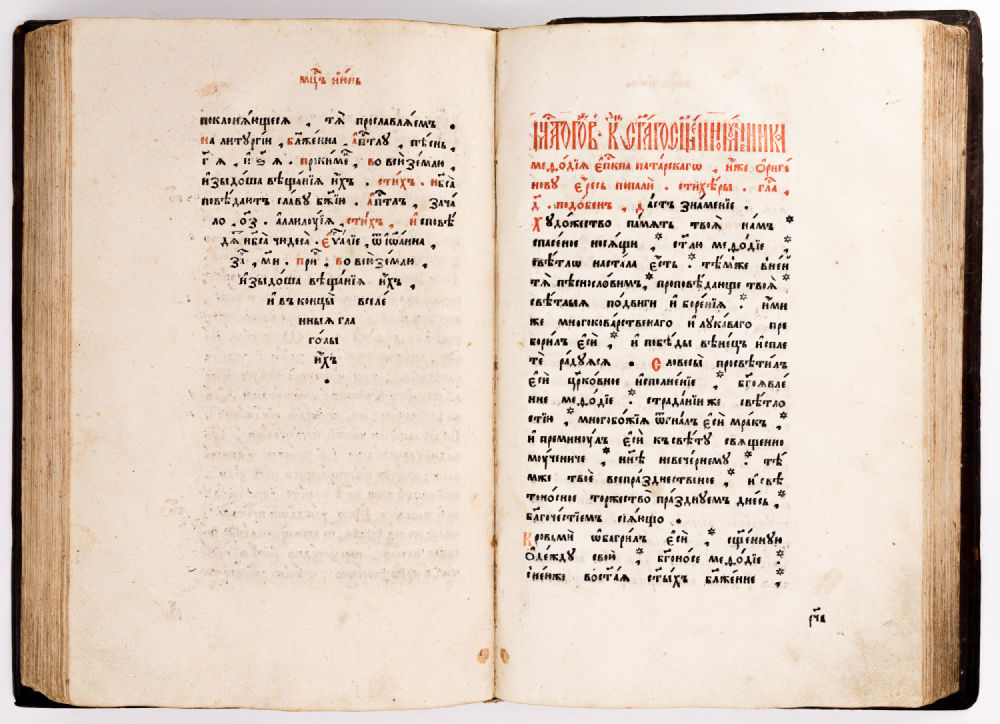 мц҃ъ і҆ю́нь
поклонѧ́ющесѧ , тѧ̀ прославлѧ́емъ .
на литꙋргі́и , бл҃же́нна , а҆пⷭ҇лꙋ , пѣ́снь ,
г҃ѧ , и҆ ѕ҃ѧ . проки́менъ , во всю̀ зе́млю ,
и҆зыдо́ша вѣща́нїѧ и҆́хъ . сти́хъ . нб҃са̀
повѣ́даютъ сла́вꙋ бж҃їю . а҆пⷭ҇лъ , зача́
ло , ѻ҃з . а҆ллилꙋ́їѧ , сти́хъ , и҆сповѣ́
дѧ́тъ нб҃са̀ чꙋдеса̀ . є҆ѵⷢ҇лїе , ѿ і҆ѡа́нна ,
за , м҃и . при , во всю̀ зе́млю ,
и҆зыдо́ша вѣща́нїѧ и҆́хъ ,
и҆ въ концы̀ вселе́
нныѧ гла
го́лы
и҆́хъ
.
ст҃а́гѡ сщ҃е́нномꙋ́ченика
меѳо́дїѧ є҆пⷭ҇кпа пата́рскагѡ , и҆́же ѻ҆риге́
новꙋ є҆́ресь попалѝ . стихѣ́ры . гла́ ,
д҃ . подо́бенъ , да́стъ зна́менїе .
Хꙋдо́жество па́мѧть твоѧ̀ на́мъ *
спасе́ное носѧ́щи ,* ст҃лю меѳо́дїе ,*
свѣ́тло наста́ла є҆́сть .* тѣ́мже в не́й
тѧ̀ пѣсносло́вимъ ,* проповѣ́дающе твоѧ̀ *
свѣ́тлыѧ по́двиги и҆ боре́нїѧ .* и҆́ми
же многокова́рственаго и҆ лꙋка́ваго пре
бори́лъ є҆сѝ ,* и҆ побѣ́ды вѣне́цъ и҆спле
тѐ ра́дꙋѧсѧ . Словесы̀ просвѣти́лъ
є҆сѝ цр҃ко́вное и҆сполне́нїе ,* бг҃оѧвле́
нне меѳо́дїе .* страда́нїи же свѣ́тло
стїю ,* многобо́жїѧ ѿгна́лъ є҆сѝ мра́къ ,*
и҆ преминꙋ́лъ є҆сѝ къ свѣ́тꙋ свѧще́нно
мꙋ́чениче ,* нн҃ѣ невече́рнемꙋ .* тѣ́
мже твоѐ всепра́зднественое ,* и҆ свѣ
тоно́сное торжество̀ пра́зднꙋемъ дне́сь ,*
бл҃гоче́стїемъ сїѧ́ющо .
Кро́вьми ѡ҆багри́лъ є҆сѝ ,* сщ҃е́ннꙋю
ѻ҆де́ждꙋ свою̀ ,* бг҃оно́се меѳо́дїе .*
с не́юже воста́ѧ ст҃ы́хъ бл҃же́нне ,*
рч҃в